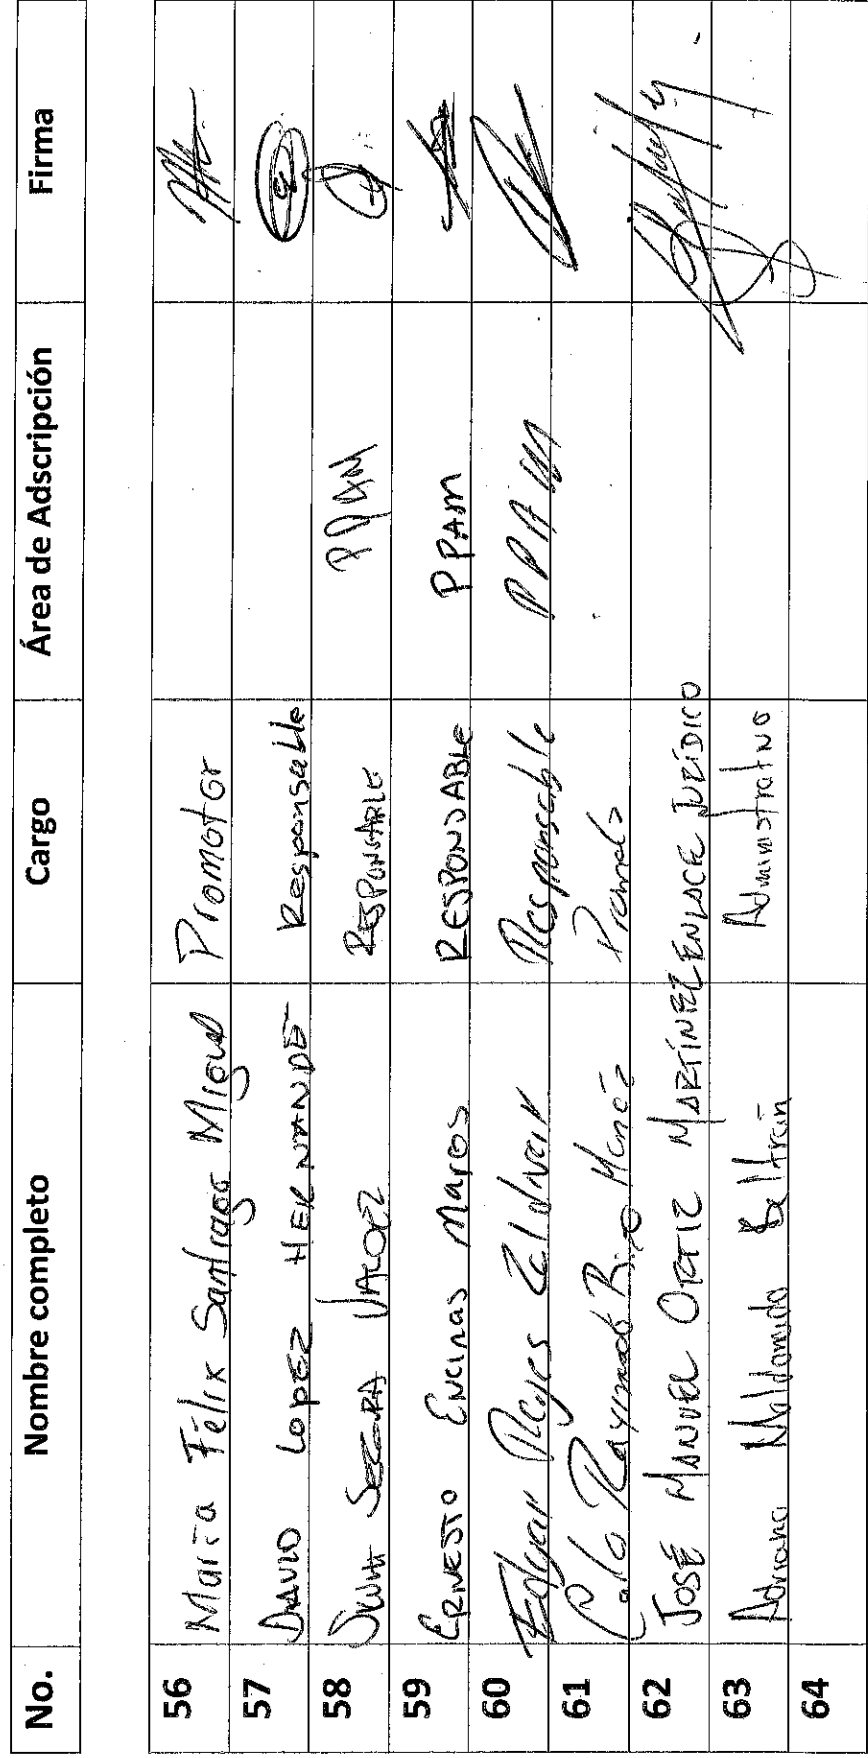 No. Nombre completo Cargo Área de Adscripción Firma
56 María Felix Santiago Miguel Promotor
57 DAVID LopEZ HERNANDE Responsable
58 SEGURA VALDEZ RESPONSABLE PPAM
59 ERNESTO Encinas Maros RESPONSABLE PPAM
60 Edgar Reyes Zaldivar Responsable PPAM
61 Raymundo
62 JOSÉ MANUEL ORTIZ MARTÍNEZ ENLACE JURÍDICO
63 Adriana Maldonado Beltrán Administrativo
64